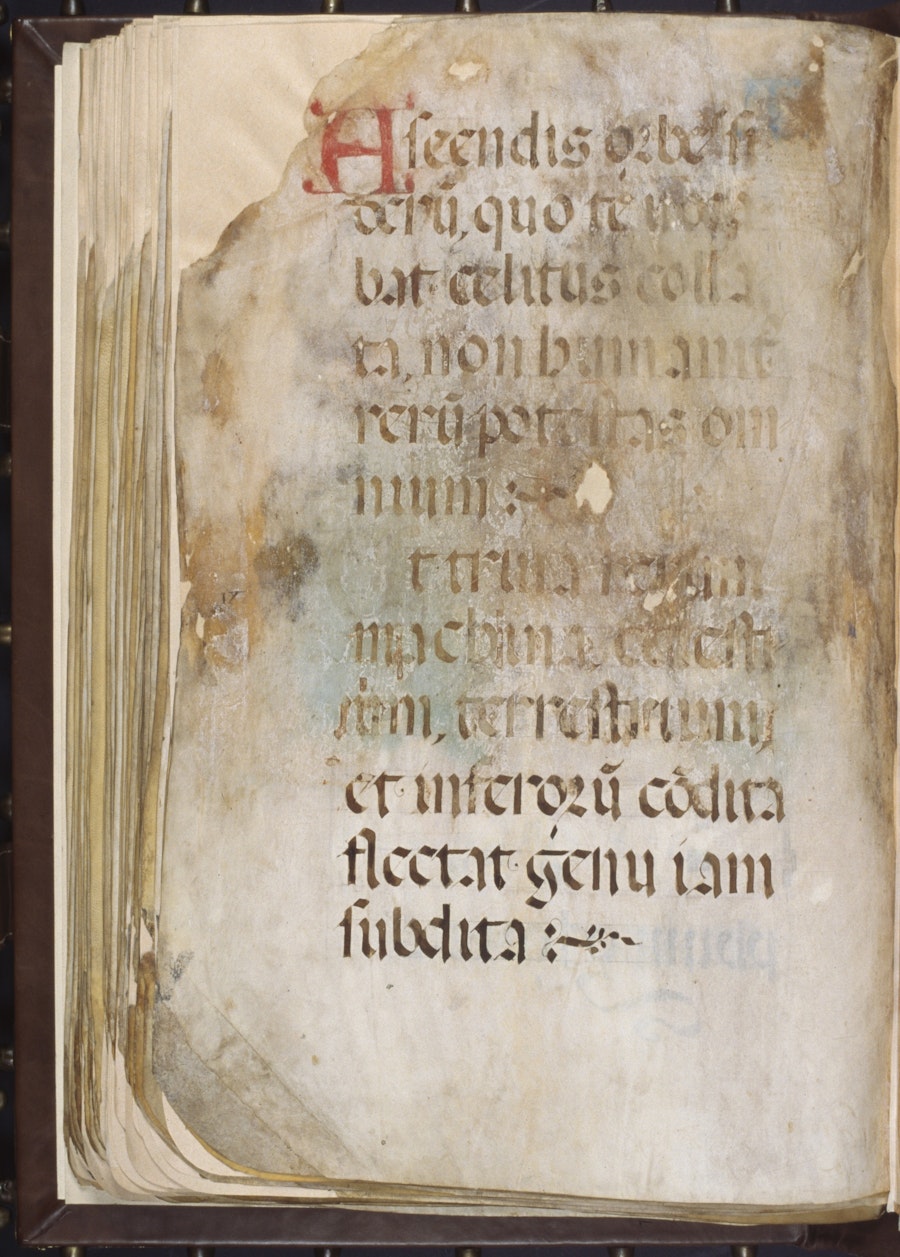 Ascendis orbes si
derū, quo te voca
bat celitus colla
ta, non humanit̄
rerū potestas om
nium
t trina rerum
machina celesti
um, terrestrium,
et inferorū cōdita
flectat genu iam
subdita